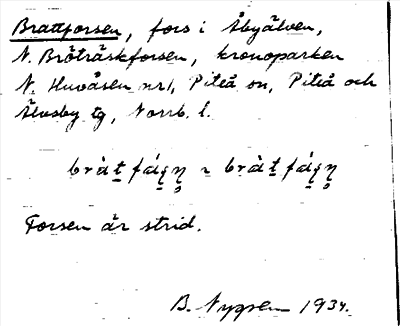 Brattforsen, fors i Åbyälven,
N. Bröträskforsen, kronoparken
N. Huvåsen nr 1, Piteå sn, Piteå och
Älvsby tg, Norrb. l.
bràt̲ fáʂn̥ ~ bràt̲ fáʂn̥
Forsen är strid.
B. Nygren 1934.